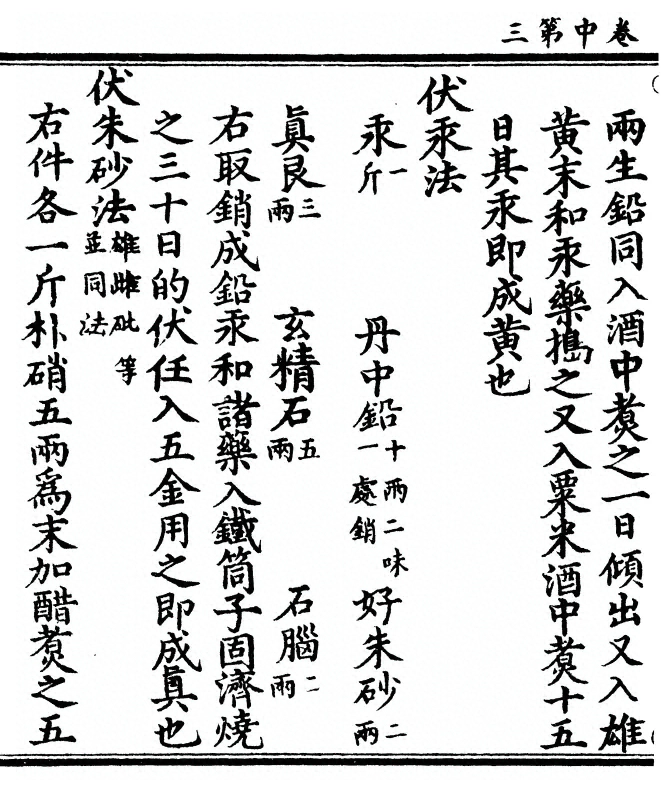 卷中第三
兩生鉛同入酒中煑之一日傾出又入雄
黄末和汞藥搗之又入粟米酒中煑十五
日其汞即成黄也
伏汞法
汞一斤 丹中鉛十兩二味一處銷 好朱砂二兩
眞艮三兩 玄精石五兩 石腦二兩
右取銷成鉛汞和諸藥入鐵筒子固濟燒
之三十日的伏任入五金用之即成眞也
伏朱砂法雄雌砒等並同法
右件各一斤朴硝五兩爲末加醋煑之五